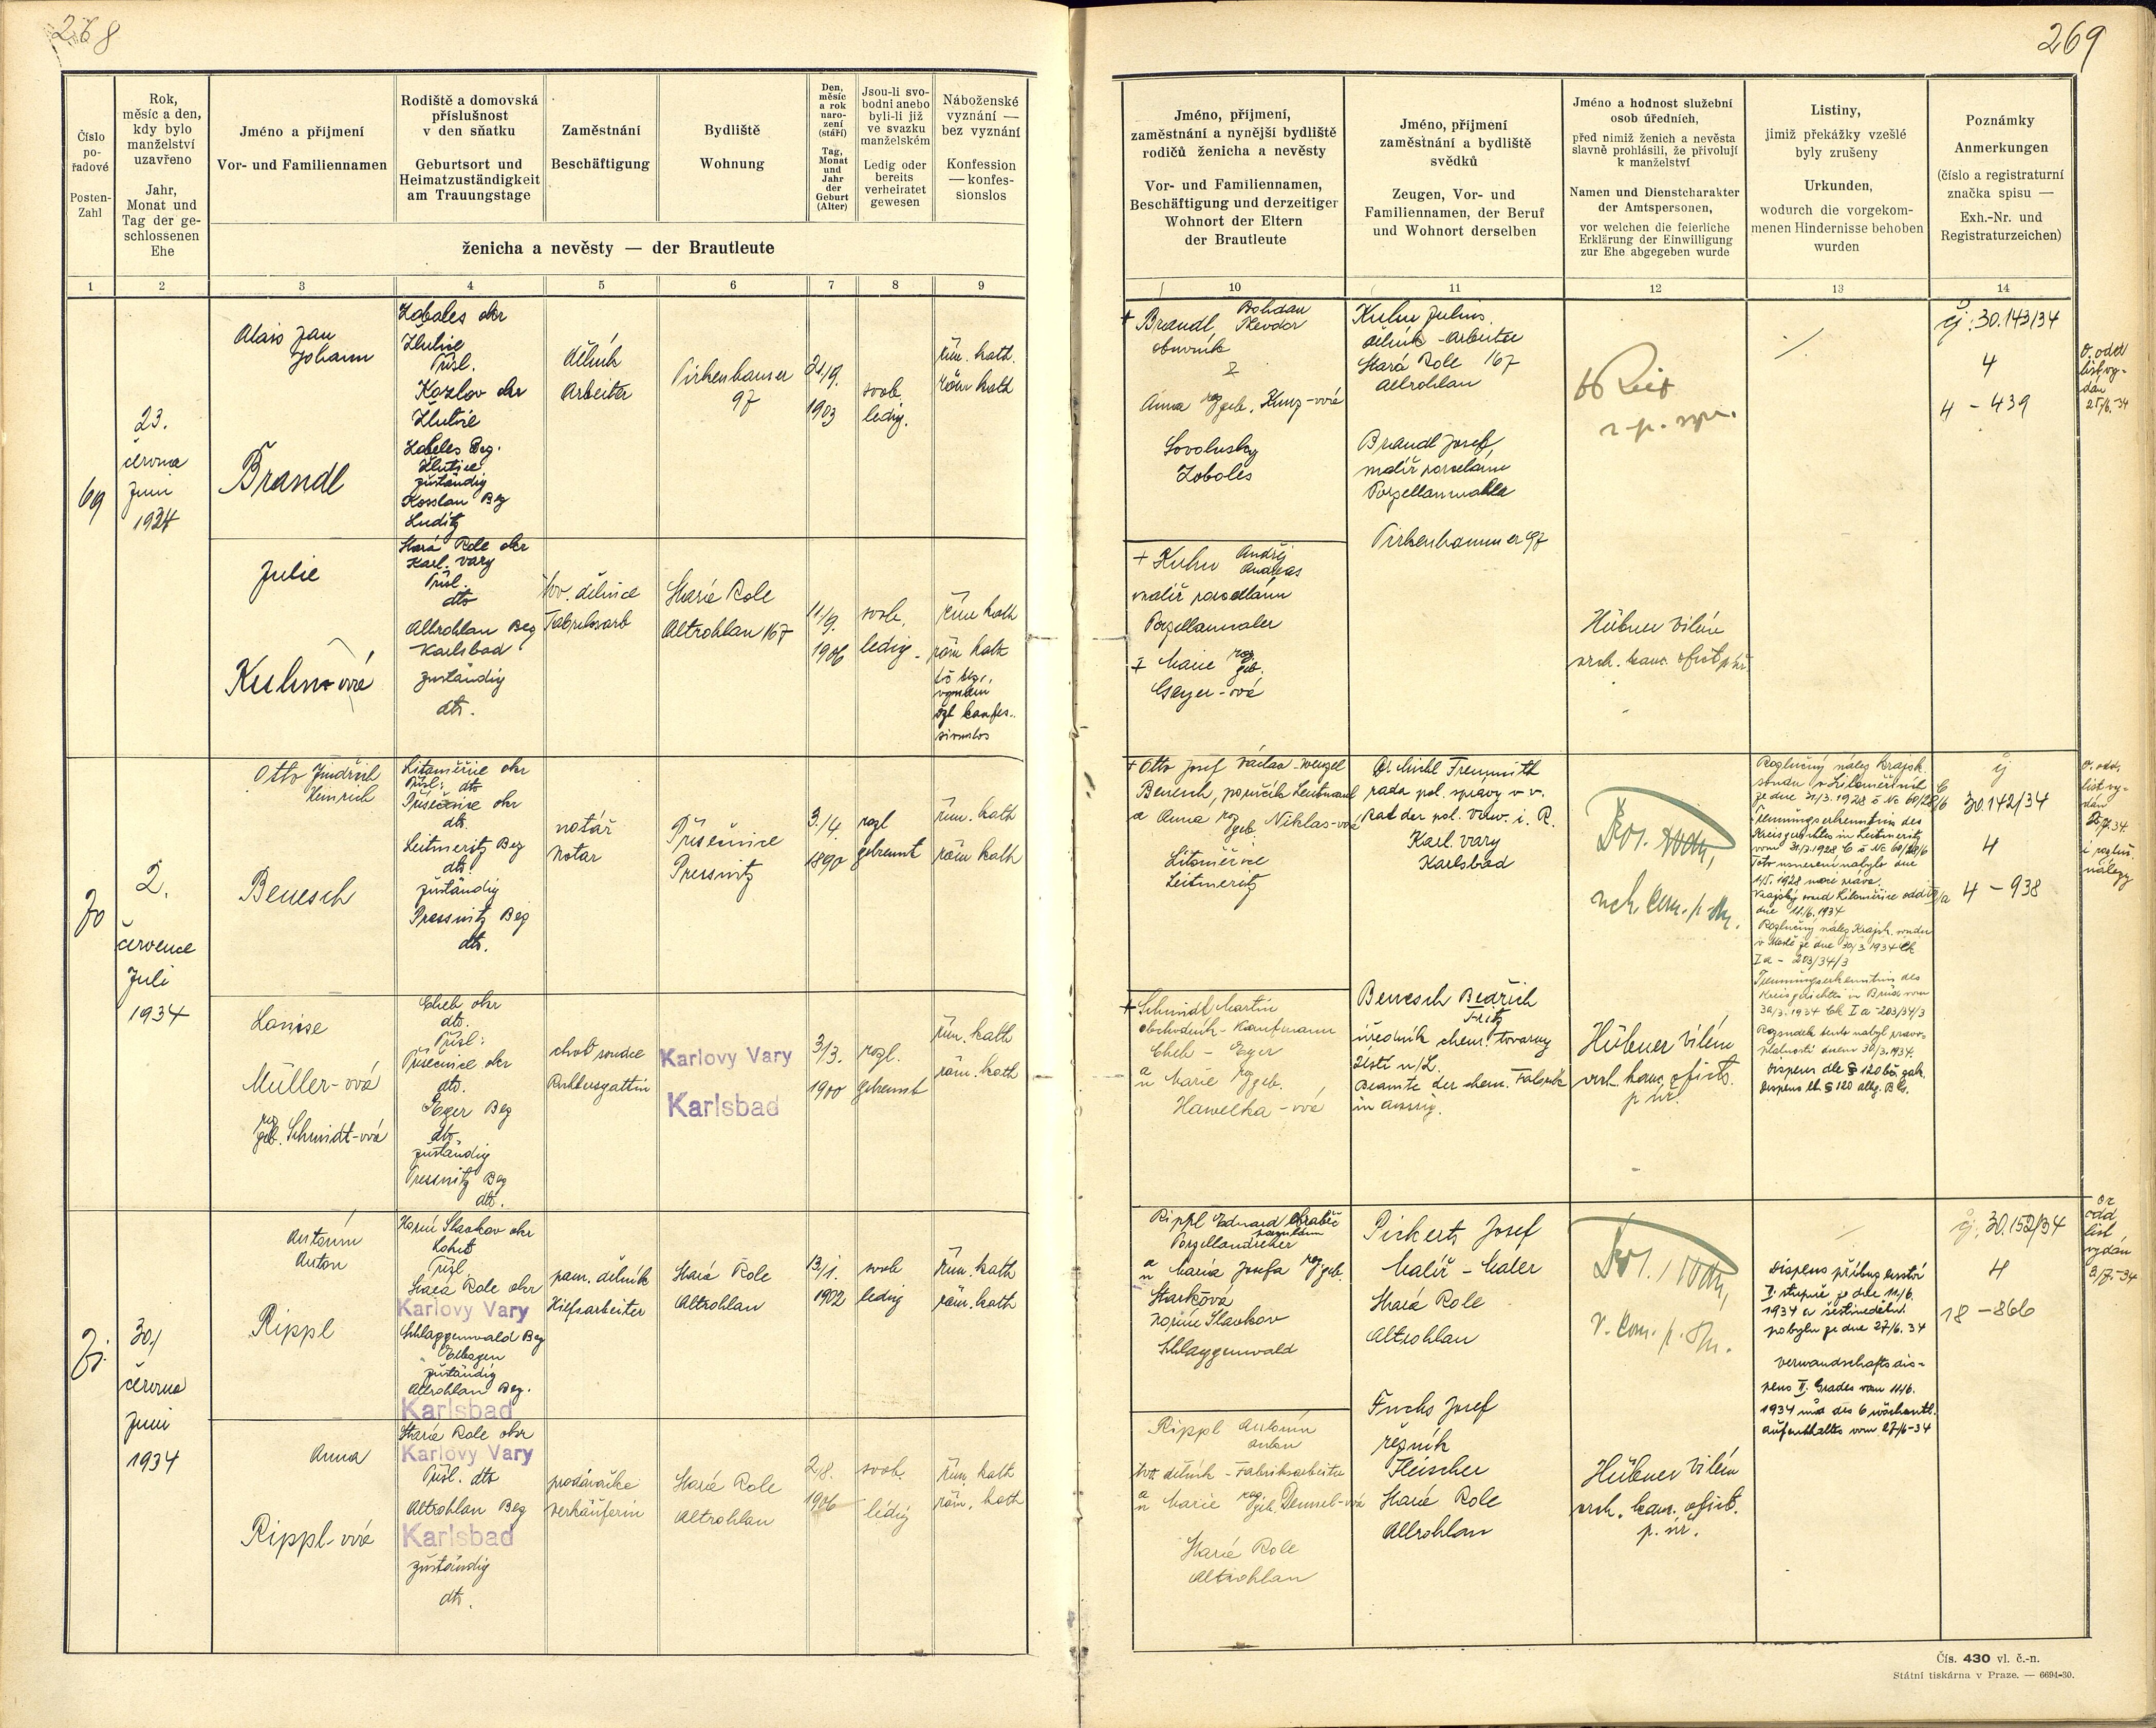 268
269
Číslo pořadové
Posten-Zahl
Rok, měsíc a den, kdy bylo manželství uzavřeno
Jahr, Monat und Tag der geschlossenen Ehe
Jméno a příjmení
Vor- und Familiennamen
Rodiště a domovská příslušnost v den sňatku
Geburtsort und Heimatzuständigkeit am Trauungstage
Zaměstnání
Beschäftigung
Bydliště
Wohnung
Den, měsíc a rok narození (stáří)
Tag, Monat und Jahr der Geburt (Alter)
Jsou-li svobodni anebo byli-li již ve svazku manželském
Ledig oder bereits verheiratet gewesen
Náboženské vyznání — bez vyznání
Konfession — konfessionslos
ženicha a nevěsty — der Brautleute
Jméno, příjmení, zaměstnání a nynější bydliště rodičů ženicha a nevěsty
Vor- und Familiennamen, Beschäftigung und derzeitiger Wohnort der Eltern der Brautleute
Jméno, příjmení zaměstnání a bydliště svědků
Zeugen, Vor- und Familiennamen, der Beruf und Wohnort derselben
Jméno a hodnost služební osob úředních,
před nimiž ženich a nevěsta slavně prohlásili, že přivolují k manželství
Namen und Dienstcharakter der Amtspersonen,
vor welchen die feierliche Erklärung der Einwilligung zur Ehe abgegeben wurde
Listiny,
jimiž překážky vzešlé byly zrušeny
Urkunden,
wodurch die vorgekommenen Hindernisse behoben wurden
Poznámky
Anmerkungen
(číslo a registraturní značka spisu —
Exh.-Nr. und Registraturzeichen)
1 2 3 4 5 6 7 8 9 10 11 12 13 14
69
23.
června
Juni
1934
Alois Jan
Johann
Brandl
Zoboles okr
Žlutice
Přísl.
Kozlov okr
Žlutice
Zoboles Beg.
Žlutice
zuständig
Kosslau Beg
Luditz
dělník
Arbeiter
Pirkenhammer
97
21/9.
1903
svob.
ledig.
řím. kath.
röm kath
Julie
Kuhn-ová
Stará Role okr
Karl. Vary
Přísl.
dto
Altrohlau Beg
Karlsbad
zuständig
dto.
tov. dělnice
Fabriksarb
Stará Role
Altrohlau 167
11/9.
1906
svob.
ledig.
řím kath
röm kath
+ Brandl Bohdan
Theodor
obuvník
Anna roz geb. Kunz-ová
Sovolusky
Zoboles
+ Kuhn Andrěj
Andreas
malíř porcelánu
Porzellanmaler
+ Marie roz geb.
Geyer-ová
Kuhn Julius
dělník - Arbeiter
Stará Role 167
Altrohlau
Brandl Josef
malíř porcelánu
Porzellanmaler
Pirkenhammer 97
Hübner Vilém
vrch. kanc. ofict
čj. 30.143/34
4
4 - 439
o. odd
list vy-
dán
25/6. 34
70
2.
července
Juli
1934
Otto Jindřich
Heinrich
Benesch
Litoměřice okr
Přísl: dto
Přísečnice okr
dto.
Leitmeritz Beg
dto.
zuständig
Pressnitz Beg
dto.
notář
Notar
Přísečnice
Pressnitz
3./4.
1890
rozl
getrennt
řím. kath
röm kath
Louise
Müller-ová
roz geb. Schmidt-ová
Cheb okr
dto.
Přísl:
Přísečnice okr
dto.
Eger Beg
dto
zuständig
Pressnitz Beg
dto.
choť soudce
Richtersgattin
Karlovy Vary
Karlsbad
3/3.
1900
rozl.
getrennt
řím. kath
röm. kath
+ Otto Josef Václav - Wenzel
Benesch, poručík Leutnant
a Anna roz geb. Niklas-ová
Litoměřice
Leitmeritz
+ Schmidt Martin
obchodník - Kaufmann
Cheb - Eger
a Marie roz geb.
Hawelka-ová
rada pol. správy v v.
Rat der pol. Verw. i. R.
Karl. Vary
Karlsbad
Benesch Bedřich
Fritz
úředník chem. továrny
Ústí n/L.
Beamte der chem. Fabrik
in Aussig.
Hübner Vilém
vrch. kanc. oficts.
Rozlučný nález Krajsk.
soudu v Litoměřicích
ze dne 31/3. 1928
Trennungserkenntnis des
Kreisgerichtes in Leitmeritz
vom 31/3. 1928
1934
Rozlučný nález Krajsk. soudu
v Mostě ze dne 30/3 1934 Ck
I a - 203/34/3
Trennungserkenntnis des
Kreisgerichtes in Brüx vom
30/3. 1934 Ck I a - 203/34/3
Rozsudek tento nabyl pravo-
platnosti dnem 30/3. 1934.
Dispens dle § 120 obč. zák.
Dispens lt. § 120 allg. B G.
čj
30.142/34
4
4 - 938
o. odd.
list vy-
dán
71.
30/
června
Juni
1934
Antonín
Anton
Rippl
Horní Slavkov okr
Loket
Přísl
Stará Role okr
Karlovy Vary
Schlaggenwald Beg
Elbogen
zuständig
Altrohlau Beg.
Karlsbad
pom. dělník
Hilfsarbeiter
Stará Role
Altrohlau
13/1.
1902
svob
ledig
řím. kath
röm. kath
Anna
Rippl-ová
Stará Role okr
Karlovy Vary
Přísl. dto
Altrohlau Beg
Karlsbad
zuständig
dto.
prodavačka
Verkäuferin
Stará Role
Altrohlau
2/8.
1906
svob.
ledig
řím kath
röm. kath
Rippl Eduard
Porzellandreher
a Maria Josefa roz geb.
Starkova
Horní Slavkov
Schlaggenwald
Rippl Antonín
Anton
tov dělník - Fabriksarbeiter
a Marie roz geb. Demmel-ová
Stará Role
Altrohlau
Pickert Josef
Malíř - Maler
Stará Role
Altrohlau
Fuchs Josef
řezník
Fleischer
Stará Role
Altrohlau
Hübner Vilém
vrch. kanc. ofict.
Dispens příbuzenství
II. stupně ze dne 11/6.
1934 a šestinedělní
pobytu ze dne 27/6. 34
Verwandschaftsdis-
pens II. Grades vom 11/6.
1934 und des 6 wöchentl.
Aufenthaltes vom 27/6-34
čj. 30.152/34
4
18 - 866
odd
list
vydán
3/7.-34
Čís. 430 vl. č.-n.
Státní tiskárna v Praze. — 6694-30.